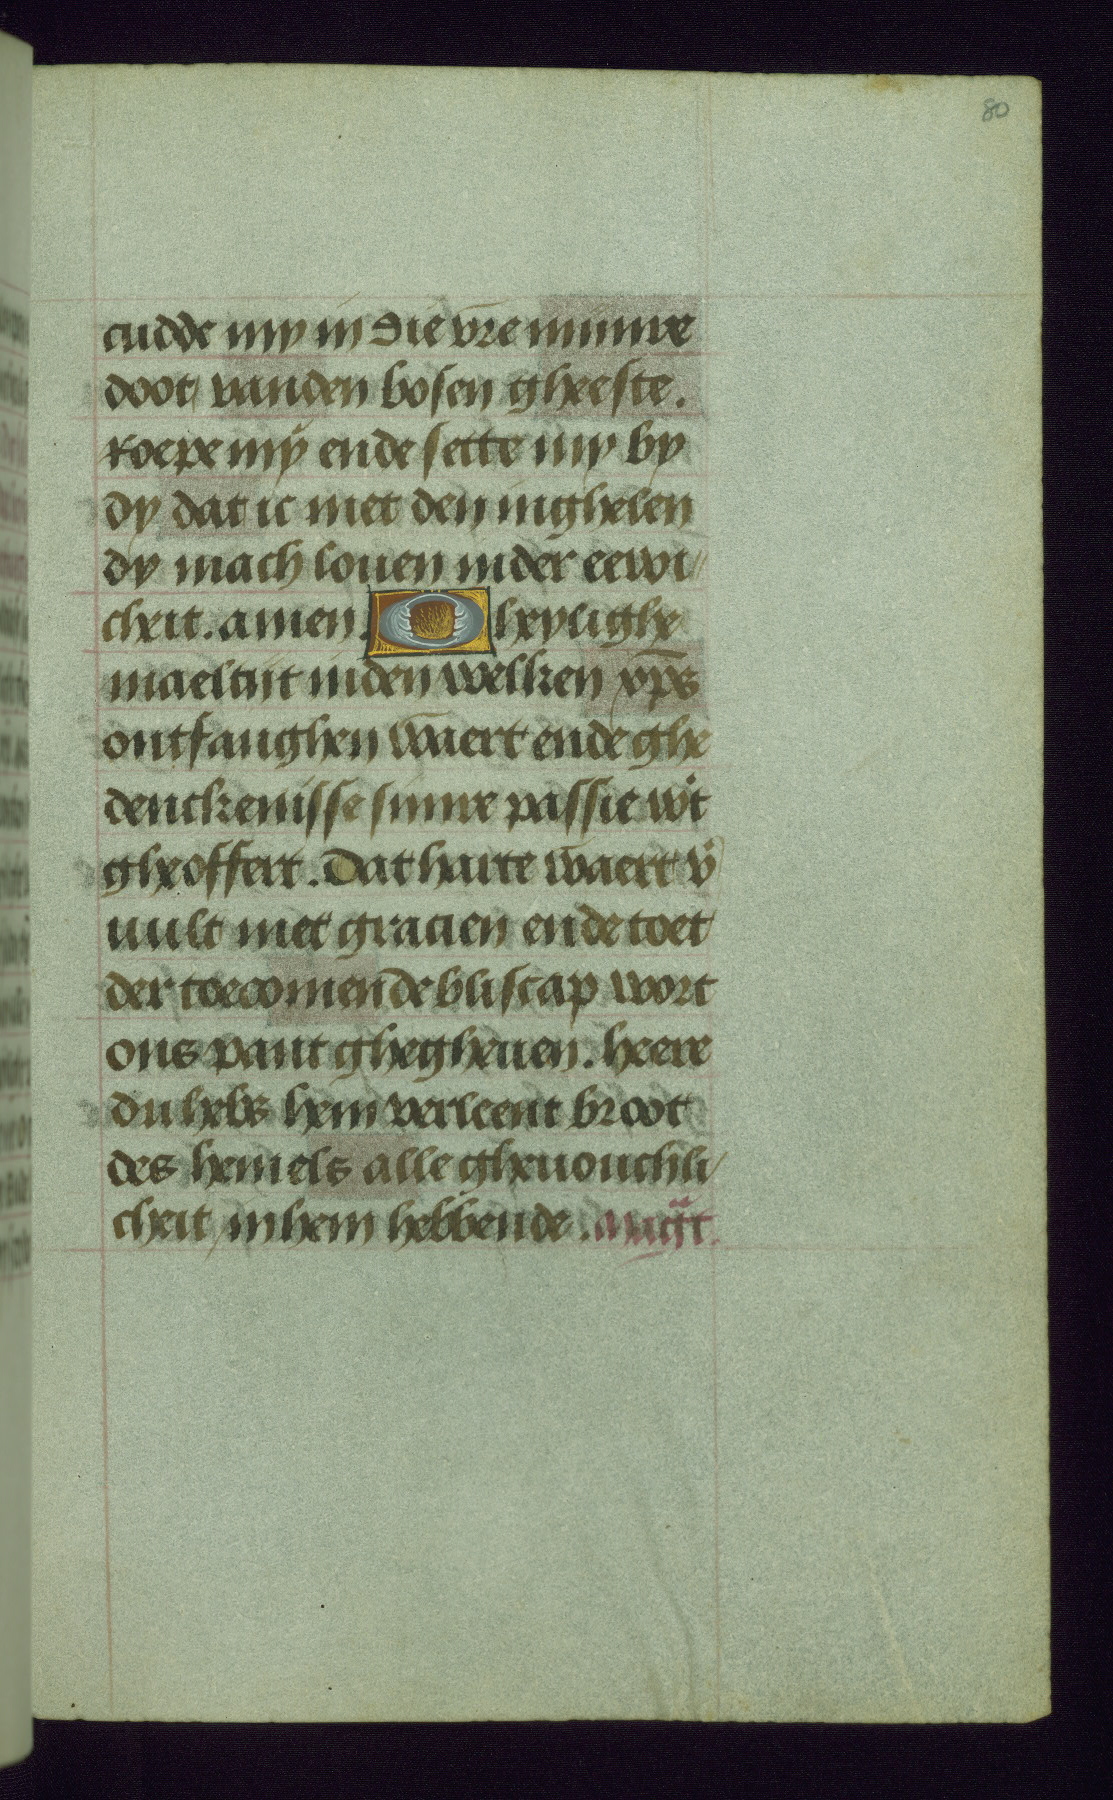 80
cudde my in die vr̄e mijnre
doot vanden bosen gheeste.
Roepe mÿ ende sette my by
dy dat ic met den inghelen
dy mach louen inder eewi
cheit. amen. O heylighe
maeltijt inden welken xp̄s
ontfanghen w̄aert ende ghe
denckenisse sijnre passie wt
gheoffert. Dat harte w̄aert v̄
uult met gracien ende toet
der toecomende bliscap wort
ons pant ghegheuen. heere
du hebs hem verleent broot
des hemels alle ghenouchli
cheit inhem hebbende.